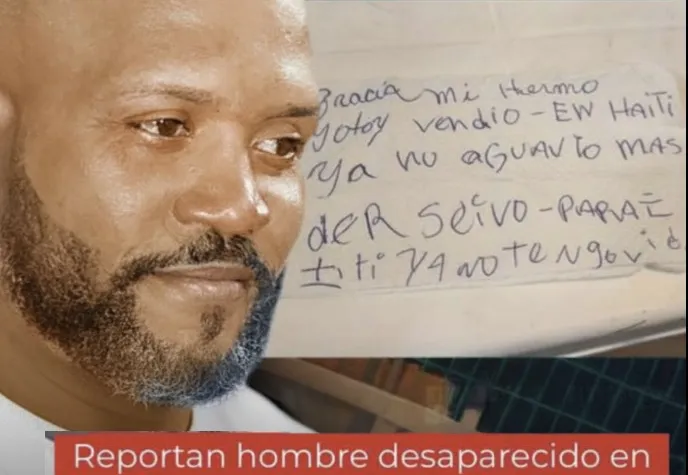 Gracia mi Hermo
yotoy vendio - EN HAiTi
ya no aguanto mas
deR Seivo - PARAI
titi YA NO Te Ngo vid
Reportan hombre desaparecido en